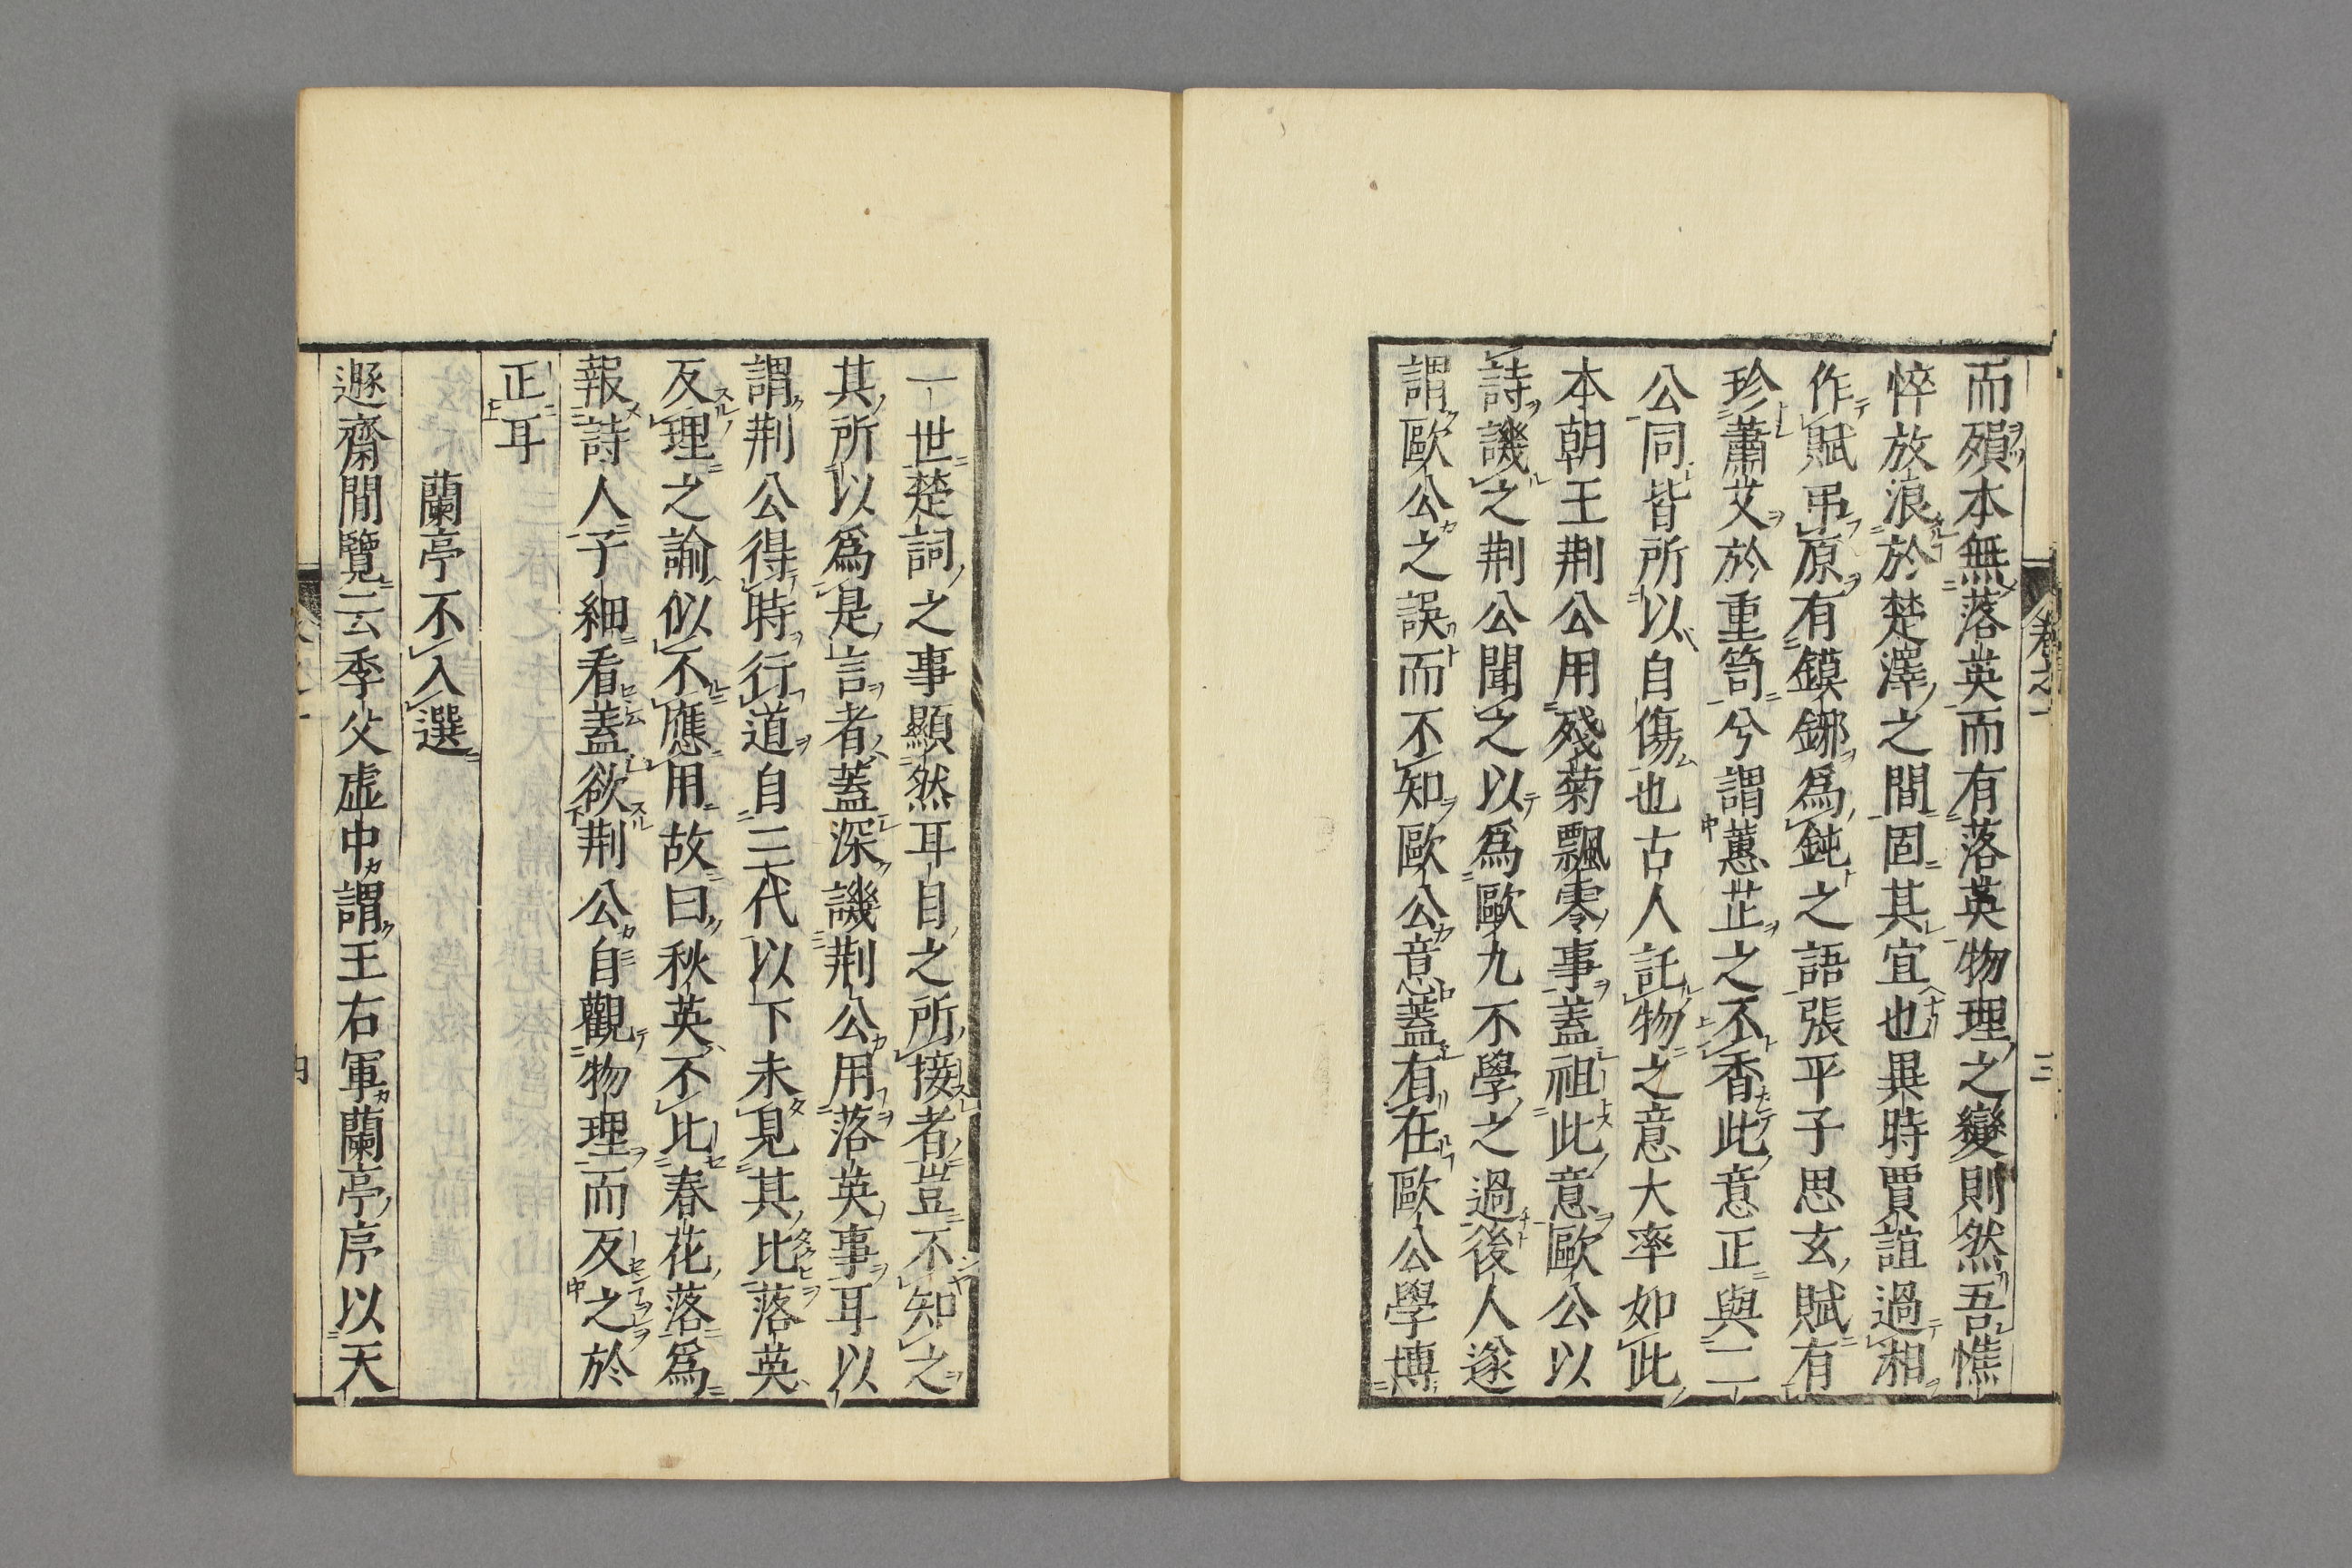 卷之一 三
而殞本無落英而有落英物理之變則然吾憔
悴放浪於楚澤之間固其宜也異時賈誼過湘
作賦弔原有鏌鋣爲鈍之語張平子思玄賦有
珍蕭艾於重笥兮謂蕙芷之不香此意正與二
公同皆所以自傷也古人託物之意大率如此
本朝王荆公用殘菊飄零事蓋祖此意歐公以
詩譏之荆公聞之以爲歐九不學之過後人遂
謂歐公之誤而不知歐公意蓋有在歐公學博
一世楚詞之事顯然耳目之所接者豈不知之
其所以爲是言者蓋深譏荆公用落英事耳以
謂荆公得時行道自三代以下未見其比落英
反理之諭似不應用故曰秋英不比春花落爲
報詩人子細看蓋欲荆公自觀物理而反之於
正耳
蘭亭不入選
遯齋閒覽云季父虛中謂王右軍蘭亭序以天
四